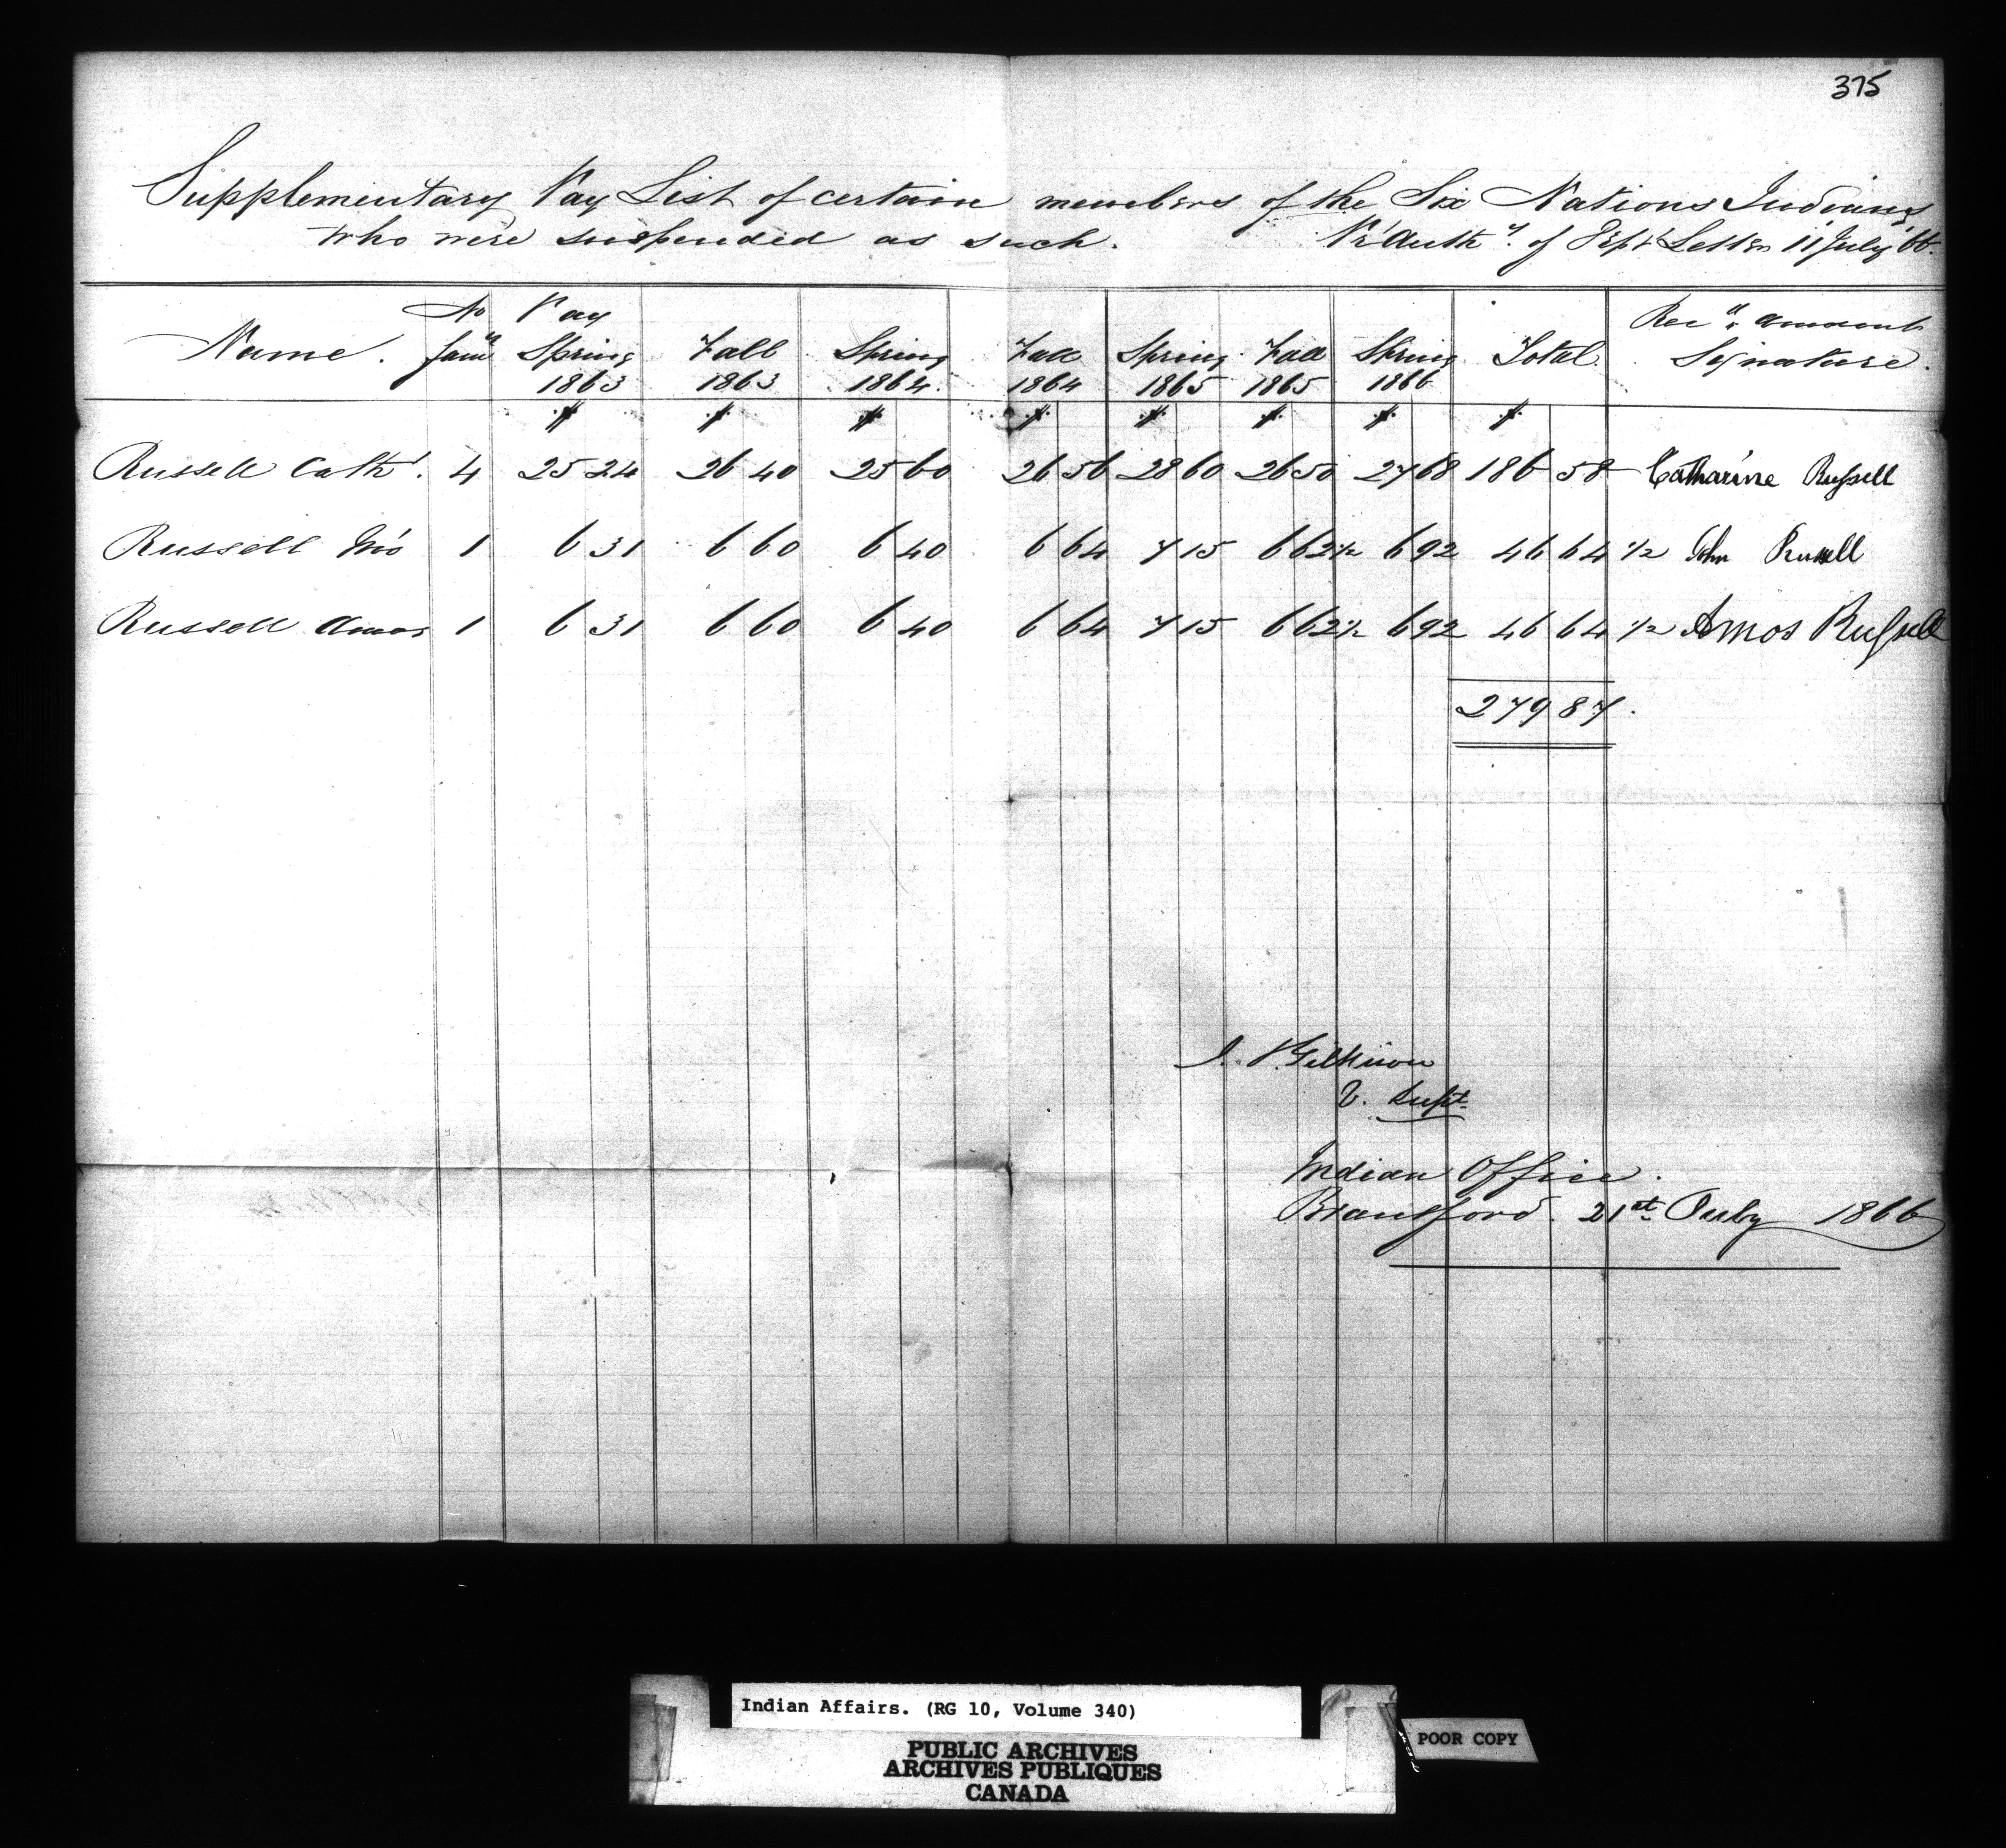 375
Supplementary Pay List of certain members of the Six Nations Indians
who were suspended as such. Pr Authy. of Dept Letter 11 July '66.
Name. No famy Pay Spring 1863 Fall 1863 Spring 1864. Fall 1864 Spring 1865 Fall 1865 Spring 1866 Total. Recd amount Signature.
$ $ $ $ $ $ $ $
Russell Cath. 4 25 24 26 40 25 60 26 56 28 60 26 50 27 68 186 58 Catharine Russell
Russell Jno 1 6 31 6 60 6 40 6 64 7 15 6 62½ 6 92 46 64 ½ John Russell
Russell Amos 1 6 31 6 60 6 40 6 64 7 15 6 62½ 6 92 46 64 ½ Amos Russell
279 87.
J. T. Gilkison
V. Supt.
Indian Office.
Brantford. 21st July 1866
Indian Affairs. (RG 10, Volume 340)
PUBLIC ARCHIVES
ARCHIVES PUBLIQUES
CANADA
POOR COPY